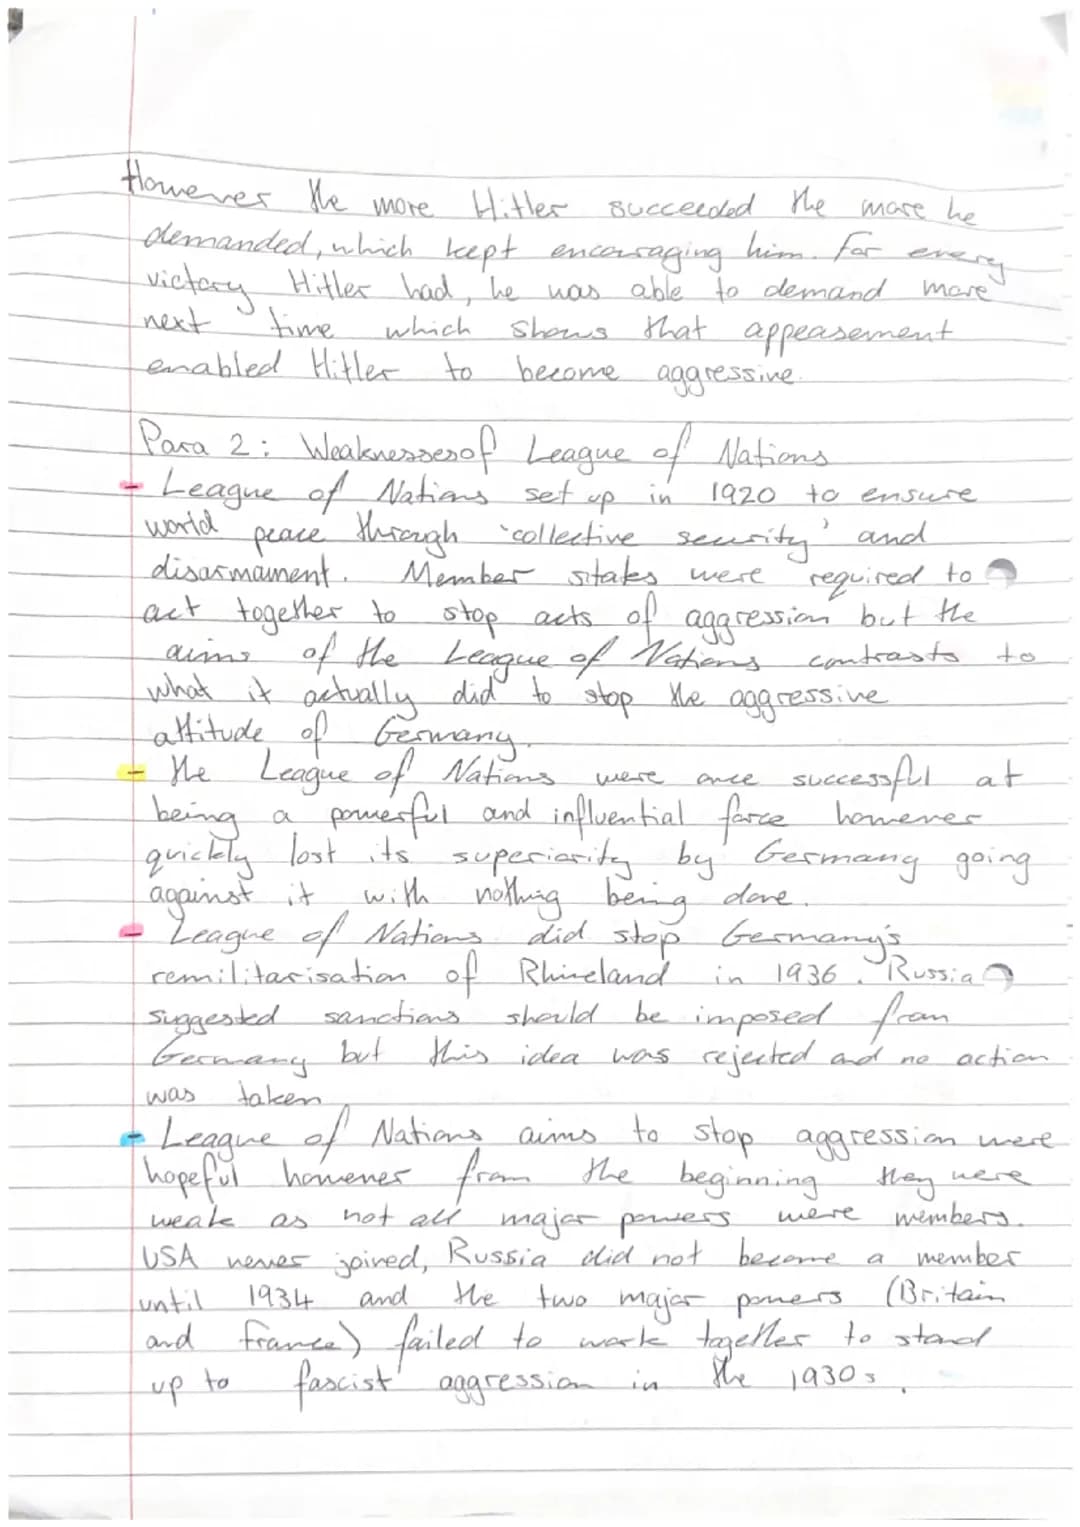 However the more Hitler succeeded the more he
demanded, which kept encouraging him. For every
victory Hitler had, he was able to demand more
next time which shows that appeasement
enabled Hitler to become aggressive.
Para 2: Weaknesses of League of Nations
- League of Nations set up in 1920 to ensure
world peace through 'collective security' and
disarmament. Member sitates were required to
act together to stop acts of aggression but the
aims of the League of Nations contrasts to
what it actually did to stop the aggressive
attitude of Germany.
- The League of Nations were once successful at
being a powerful and influential force however
quickly lost its superiority by Germany going
against it with nothing being done.
- League of Nations did stop Germany's
remilitarisation of Rhineland in 1936. Russia
suggested sanctions should be imposed from
Germany but this idea was rejected and no action
was taken
- League of Nations aims to stop aggression were
hopeful however from the beginning they were
weak as not all major powers were members.
USA never joined, Russia did not become a member
until 1934 and the two major powers (Britain
and France) failed to work together to stand
up to fascist aggression in the 1930s.